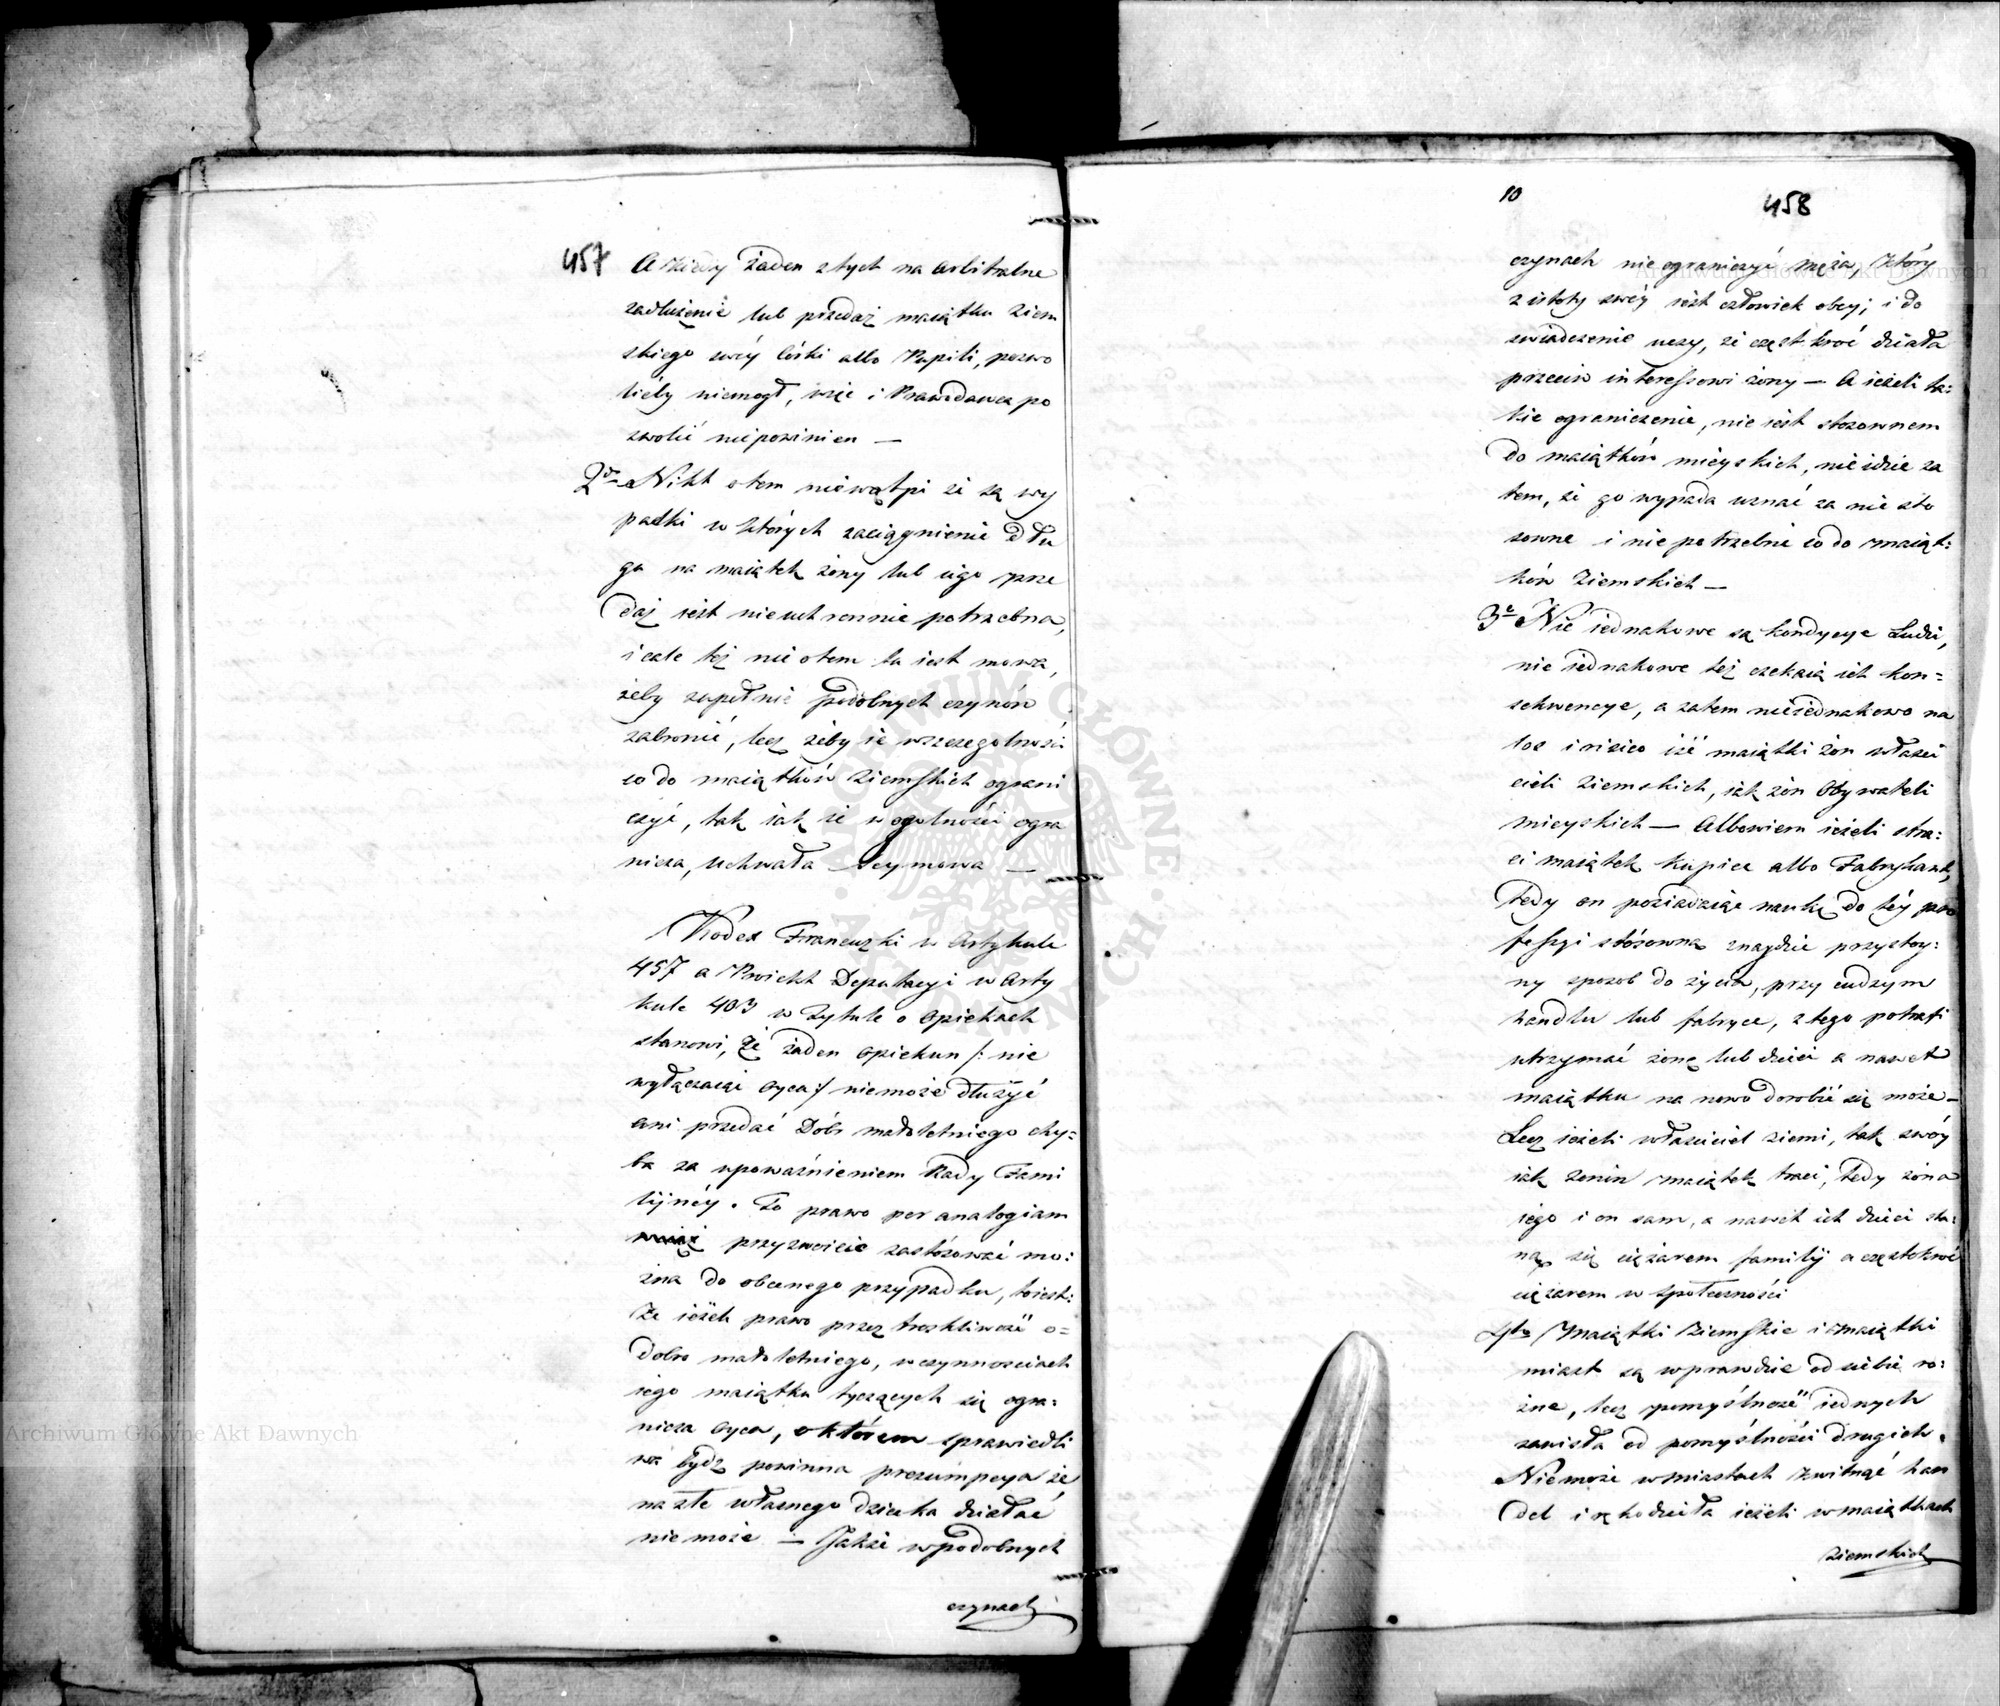 457
A kiedy żaden z tych na arbitralne
zadłużenie lub przedaż maiątku ziem
skiego swéy Córki albo Pupili, pozwo
liéby niemogł, więc i Prawodawca po
zwolić niepowinien —
2do Nikt o tem niewątpi że są wy
padki w których zaciągnienie dłu
gu na maiątek żony lub iego prze
daż iest nieuchronnie potrzebna,
i cale też nie o tem tu iest mowa,
żeby zupełnie podobnych czynów
zabronić, lecz żeby ie wszczegolności
co do maiątków ziemskich ograni
czyć, tak iak ie w ogolności ogra
nicza, Uchwała Seymowa —
Kodex Francuzki w Artykule
457 a Proiekt Deputacyi w Arty
kule 403 w Tytule o Opiekach
stanowi, że żaden Opiekun /: nie
wyłączaiąc Oyca :/ niemoże dłużyć
ani przedać Dóbr małoletniego chy=
ba za upoważnieniem Rady Fami
lijnéy. To prawo per analogiam
przyzwoicie zastósować mo:
żna do obecnego przypadku, toiest:
Że ieżeli prawo przez troskliwość o=
dobro małoletniego, w czynnosciach
iego maiątku tyczących się ogra:
nicza Oyca, o którem sprawiedli
wa bydź powinna prezumpcya że
na złe własnego dziecka działać
nie może — Jakże w podobnych
czynach
10
458
czynach nie ograniczyć męża, który
z istoty swéy iest człowiek obcy; i do
swiadczenie uczy, że częstokroć działa
przeciw interessowi żony — A ieżeli ta:
kie ograniczenie, nie iest stosownem
do maiątków mieyskich, nie idzie za
tem, że go wypada uznać za nie sto
sowne i nie potrzebne co do maiąt:
ków Ziemskich —
3e Nie iednakowe są kondycye Ludzi,
nie iednakowe też czekaią ich kon=
sekwencye, a zatem nieiednakowo na
los i risico iść maiątki żon właści
cieli Ziemskich, iak żon Obywateli
mieyskich — Albowiem ieżeli stra:
ci maiątek kupiec albo Fabrykant,
tedy on posiadaiąc naukę do téy pro
fessyi stósowną znaydzie przystoy:
ny sposob do życia, przy cudzym
handlu lub fabryce, z tego potrafi
utrzymać żonę lub dzieci a nawet
maiątku na nowo dorobić się może —
Lecz ieżeli właściciel ziemi, tak swóy
iak żonin maiątek traci, tedy żona
iego i on sam, a nawet ich dzieci sta:
ną się ciężarem familij a częstokroć
ciężarem w społeczności
4to Maiątki Ziemskie i maiątki
miast są wprawdzie od siebie ro:
żne, lecz pomyślność iednych
zawisła od pomyślności drugich.
Niemoże w miastach kwitnąć han
del i rękodzieła ieżeli w maiątkach
Ziemskich
Archiwum Główne Akt Dawnych
Archiwum Główne Akt Dawnych
ARCHIWUM GŁÓWNE AKT DAWNYCH